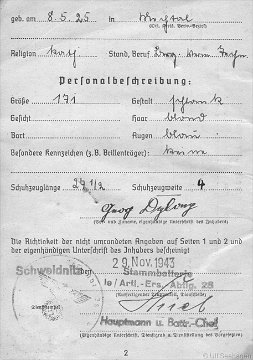 geb. am 8.5.25 in
(Ort, Kreis, Verw.-Bezirk)
Religion kath. Stand, Beruf
Personalbeschreibung:
Größe 171 Gestalt schlank
Gesicht Haar blond
Bart Augen blau
Besondere Kennzeichen (z.B. Brillenträger): keine
Schuhzeuglänge 29 1/2 Schuhzeugweite 4
Georg
(Vor- und Zuname, eigenhändige Unterschrift des Inhabers)
Die Richtigkeit der nicht umrandeten Angaben auf Seiten 1 und 2 und
der eigenhändigen Unterschrift des Inhabers bescheinigt
Schweidnitz, den 29. Nov. 1943
Stammbatterie
le/Artl.-Ers. Abtlg. 28
(Ausfertigender Truppenteil, Dienststelle)
Dienststempel
Hauptmann u. Battr.-Chef
(Eigenhändige Unterschrift, Dienstgrad u. Dienststellung des Vorgesetzten)
2